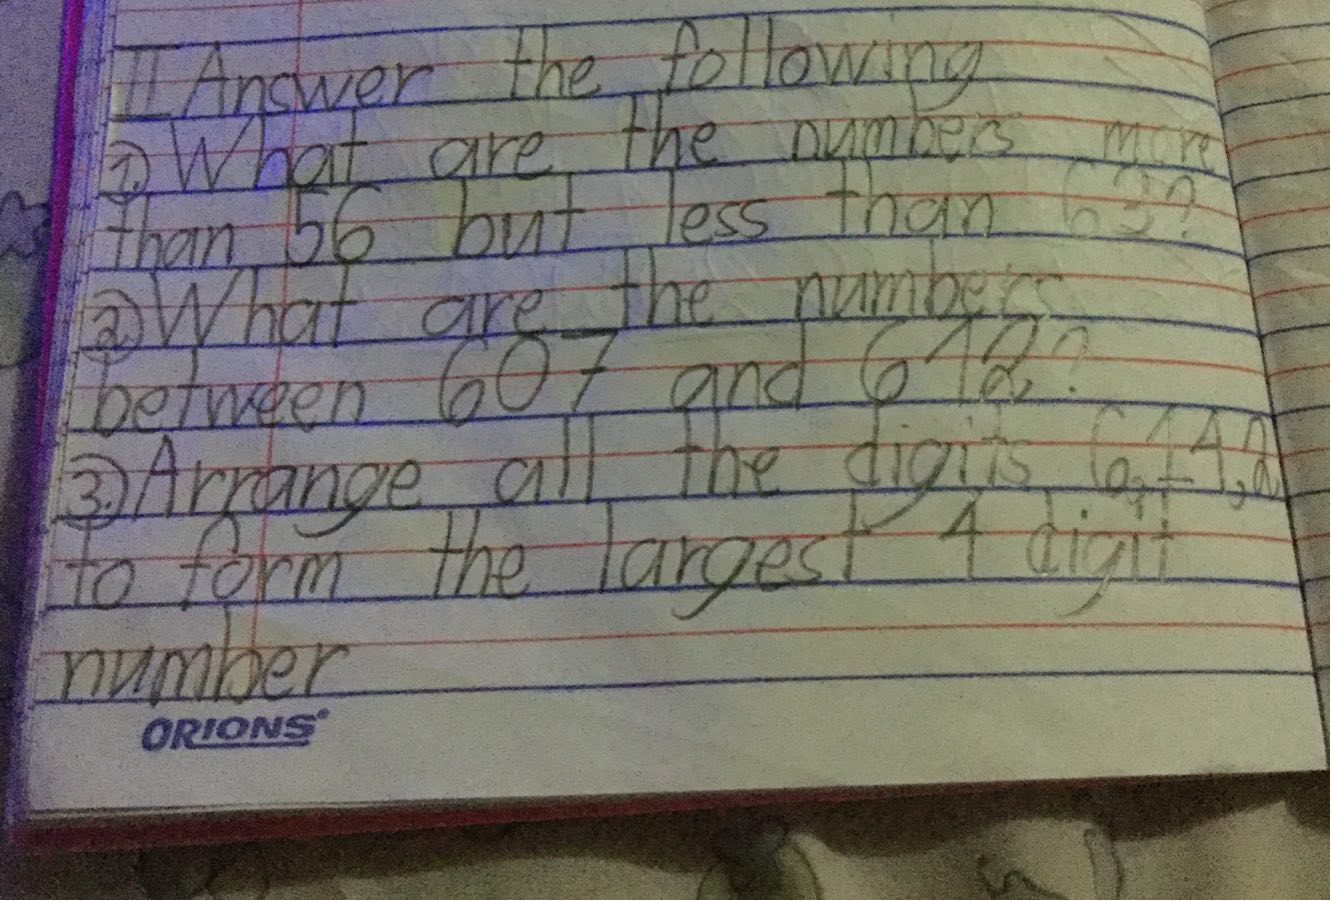 II Answer the following
1) What are the numbers more
than 56 but less than 63?
2) What are the numbers
between 607 and 612?
3.) Arrange all the digits 6,1,4,2
to form the largest 4 digit
number
ORIONS®